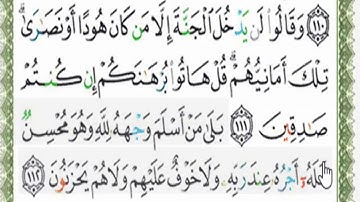 ﴿١١٠﴾ وَقَالُوا۟ لَن يَدْخُلَ ٱلْجَنَّةَ إِلَّا مَن كَانَ هُودًا أَوْ نَصَـٰرَىٰ ۗ
تِلْكَ أَمَانِيُّهُمْ ۗ قُلْ هَاتُوا۟ بُرْهَـٰنَكُمْ إِن كُنتُمْ
صَـٰدِقِينَ ﴿١١١﴾ بَلَىٰ مَنْ أَسْلَمَ وَجْهَهُۥ لِلَّهِ وَهُوَ مُحْسِنٌ
فَلَهُۥٓ أَجْرُهُۥ عِندَ رَبِّهِۦ وَلَا خَوْفٌ عَلَيْهِمْ وَلَا هُمْ يَحْزَنُونَ ﴿١١٢﴾